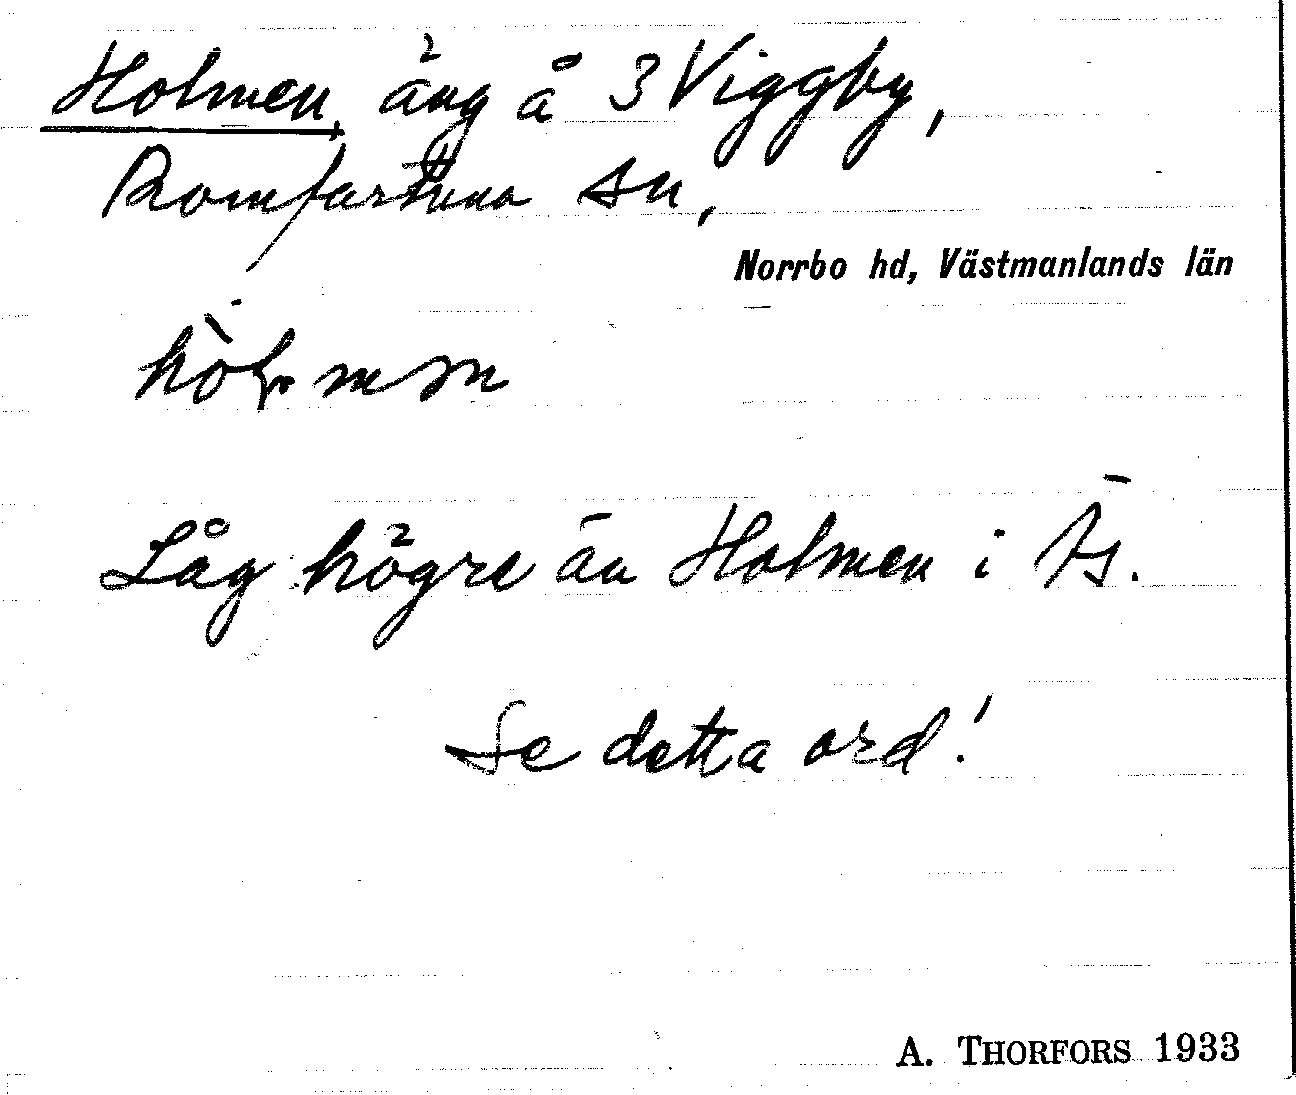 Holmen, äng å 3 Viggby,
Romfartuna sn,
Norrbo hd, Västmanlands län
Låg högre än Holmen i Ts.
Se detta ord!
A. THORFORS 1933